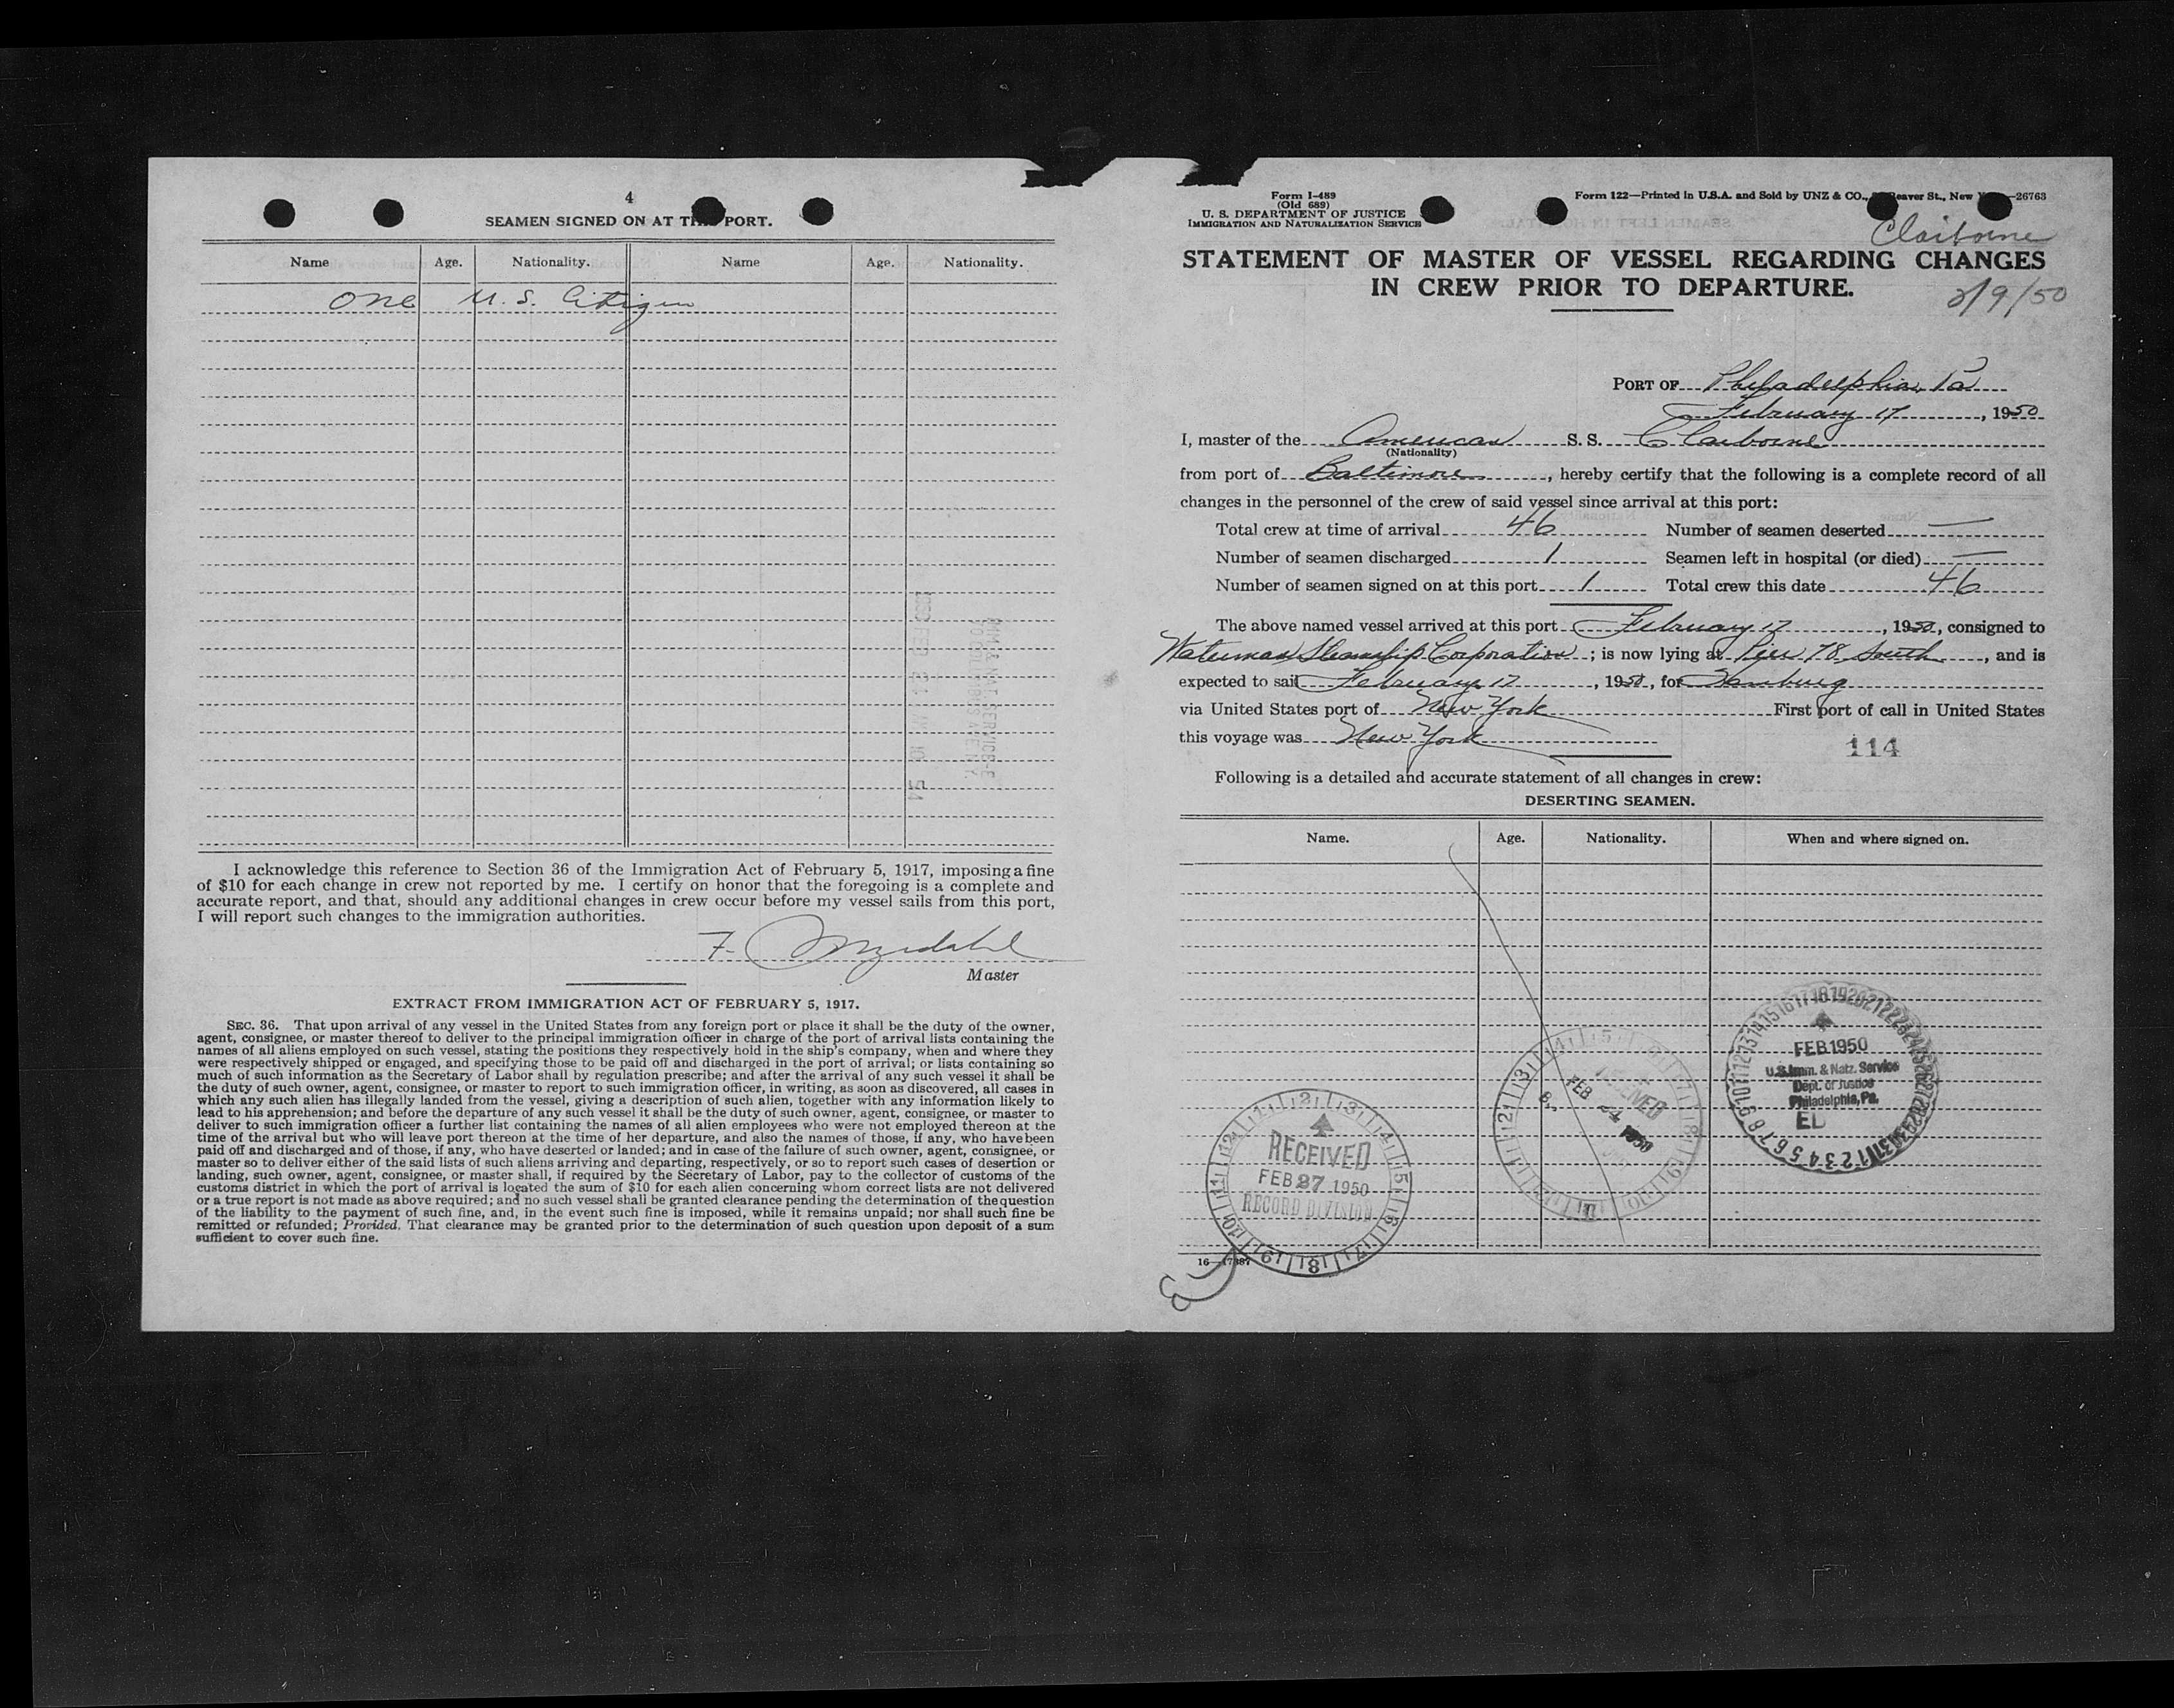 4
SEAMEN SIGNED ON AT THIS PORT.
Name Age. Nationality. Name Age. Nationality.
One U.S. Citizen
I acknowledge this reference to Section 36 of the Immigration Act of February 5, 1917, imposing a fine
of $10 for each change in crew not reported by me. I certify on honor that the foregoing is a complete and
accurate report, and that, should any additional changes in crew occur before my vessel sails from this port,
I will report such changes to the immigration authorities.
F.
Master
EXTRACT FROM IMMIGRATION ACT OF FEBRUARY 5, 1917.
SEC. 36. That upon arrival of any vessel in the United States from any foreign port or place it shall be the duty of the owner,
agent, consignee, or master thereof to deliver to the principal immigration officer in charge of the port of arrival lists containing the
names of all aliens employed on such vessel, stating the positions they respectively hold in the ship's company, when and where they
were respectively shipped or engaged, and specifying those to be paid off and discharged in the port of arrival; or lists containing so
much of such information as the Secretary of Labor shall by regulation prescribe; and after the arrival of any such vessel it shall be
the duty of such owner, agent, consignee, or master to report to such immigration officer, in writing, as soon as discovered, all cases in
which any such alien has illegally landed from the vessel, giving a description of such alien, together with any information likely to
lead to his apprehension; and before the departure of any such vessel it shall be the duty of such owner, agent, consignee, or master to
deliver to such immigration officer a further list containing the names of all alien employees who were not employed thereon at the
time of the arrival but who will leave port thereon at the time of her departure, and also the names of those, if any, who have been
paid off and discharged and of those, if any, who have deserted or landed; and in case of the failure of such owner, agent, consignee, or
master so to deliver either of the said lists of such aliens arriving and departing, respectively, or so to report such cases of desertion or
landing, such owner, agent, consignee, or master shall, if required by the Secretary of Labor, pay to the collector of customs of the
customs district in which the port of arrival is located the sum of $10 for each alien concerning whom correct lists are not delivered
or a true report is not made as above required; and no such vessel shall be granted clearance pending the determination of the question
of the liability to the payment of such fine, and, in the event such fine is imposed, while it remains unpaid; nor shall such fine be
remitted or refunded; Provided, That clearance may be granted prior to the determination of such question upon deposit of a sum
sufficient to cover such fine.
Form I-489
(Old 689)
U. S. DEPARTMENT OF JUSTICE
IMMIGRATION AND NATURALIZATION SERVICE
Form 122—Printed in U.S.A. and Sold by UNZ & CO., Beaver St., New —26763
Claiborne
STATEMENT OF MASTER OF VESSEL REGARDING CHANGES
IN CREW PRIOR TO DEPARTURE.
2/9/50
PORT OF Philadelphia, Pa
February 17, 1950
I, master of the American S. S. Claiborne
(Nationality)
from port of Baltimore, hereby certify that the following is a complete record of all
changes in the personnel of the crew of said vessel since arrival at this port:
Total crew at time of arrival 46 Number of seamen deserted —
Number of seamen discharged 1 Seamen left in hospital (or died) —
Number of seamen signed on at this port 1 Total crew this date 46
The above named vessel arrived at this port February 17, 1950, consigned to
Waterman Steamship Corporation; is now lying at Pier 78 South, and is
expected to sail February 17, 1950, for Hamburg
via United States port of New York First port of call in United States
this voyage was New York
114
Following is a detailed and accurate statement of all changes in crew:
DESERTING SEAMEN.
Name. Age. Nationality. When and where signed on.
FEB 1950
U.S. Imm. & Natz. Service
Dept. of Justice
Philadelphia, Pa.
RECEIVED
FEB 24 1950
RECEIVED
FEB 27 1950
RECORD DIVISION